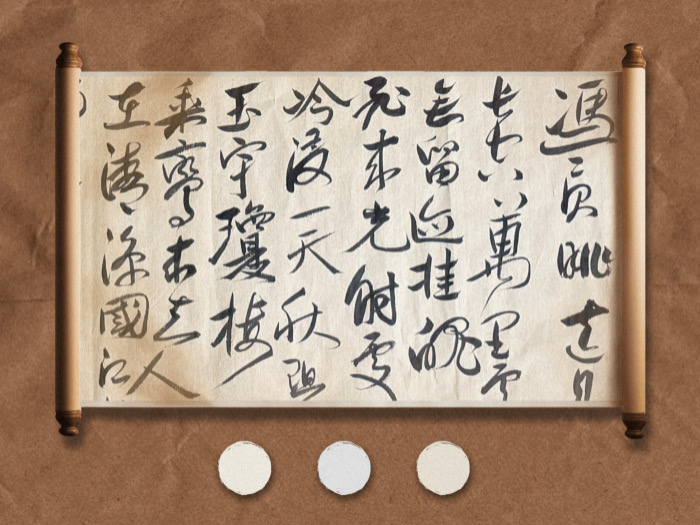 憑高眺遠見
長空萬里雲
無留迹桂魄
飛來光射處
冷浸一天秋碧
玉宇瓊樓
乘鸞來去人
在清涼國江